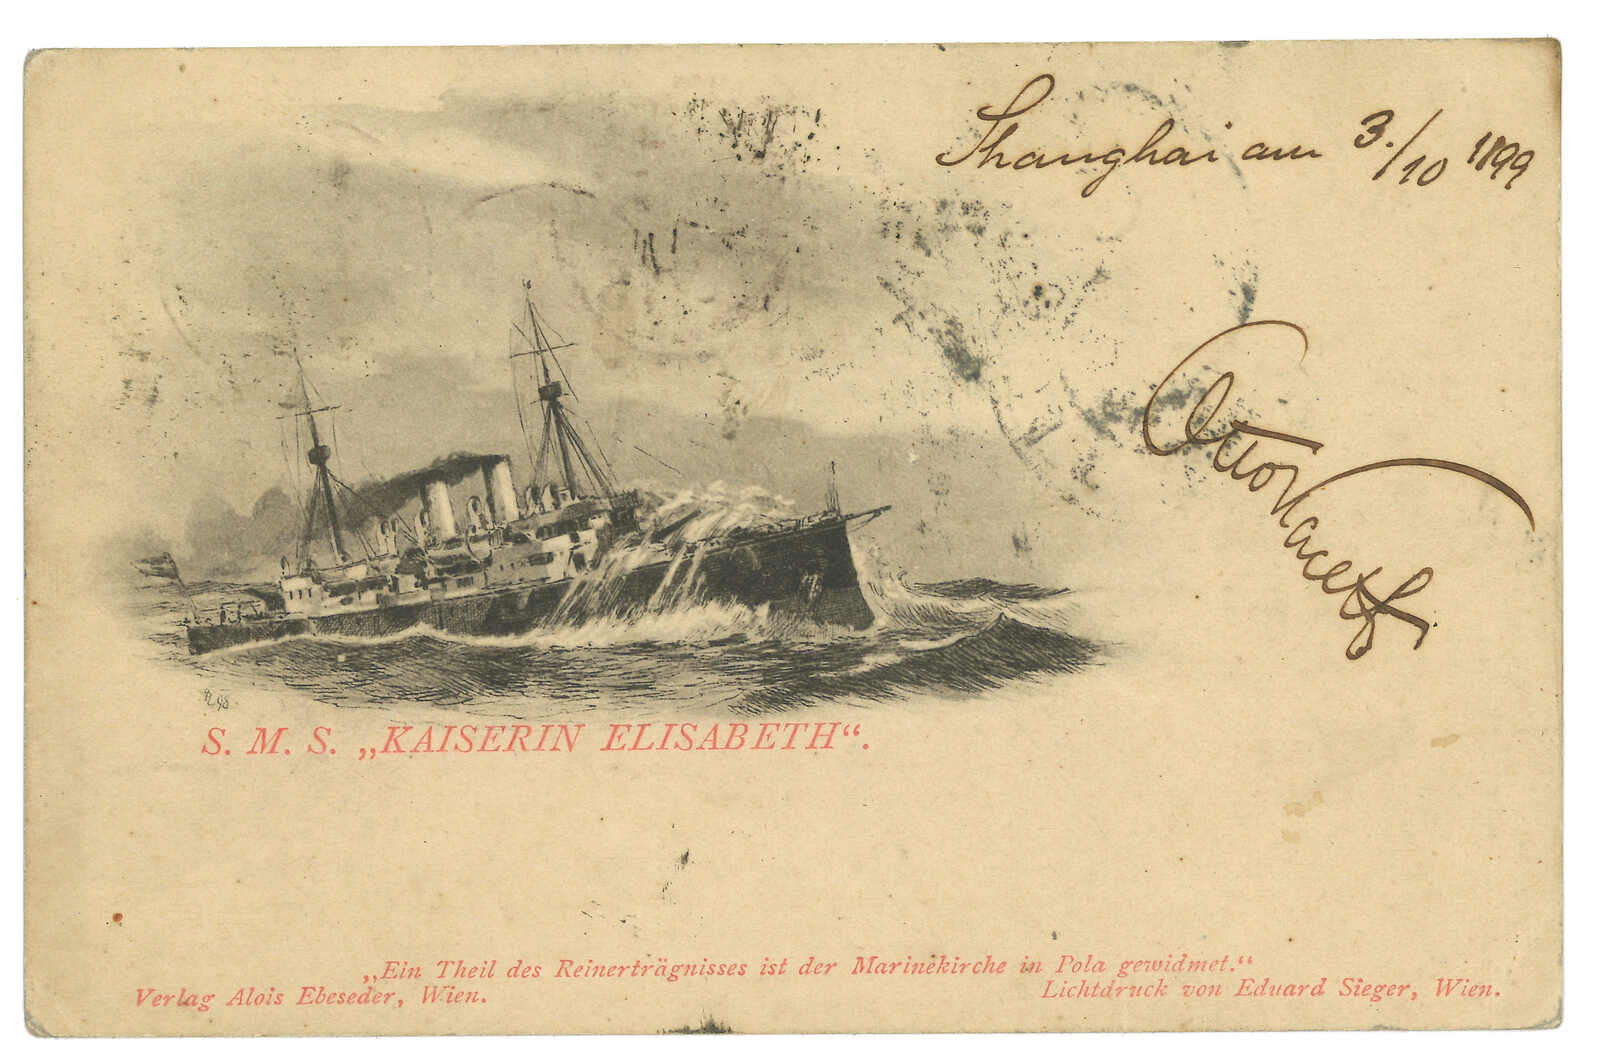 Shanghai am 3./10 1899
Otto
98
S. M. S. „KAISERIN ELISABETH“.
„Ein Theil des Reinerträgnisses ist der Marinekirche in Pola gewidmet.“
Verlag Alois Ebeseder, Wien.
Lichtdruck von Eduard Sieger, Wien.